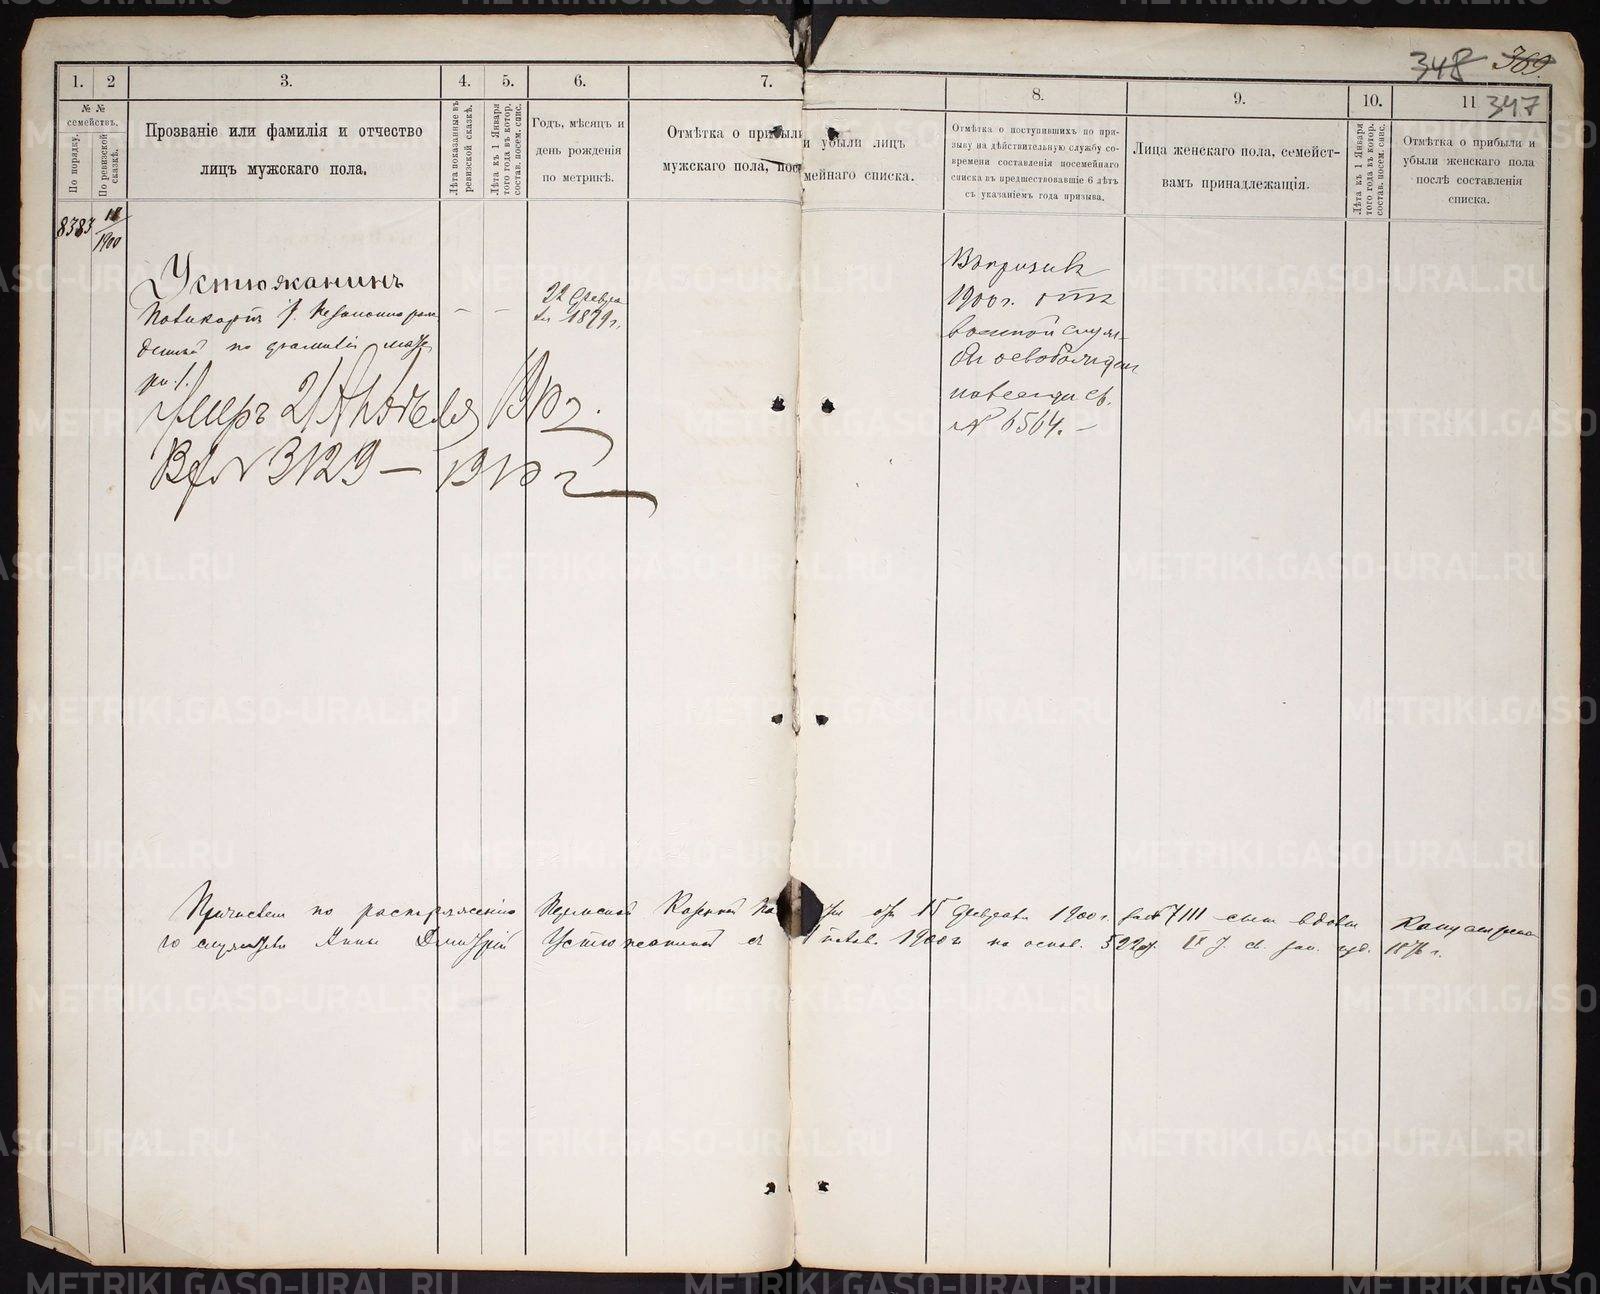 348 369
347
1. 2 3. 4. 5. 6. 7. 8. 9. 10. 11
№ № семействъ.
По порядку.
По ревизской сказкѣ.
Прозваніе или фамилія и отчество
лицъ мужскаго пола.
Лѣта показанные въ ревизской сказкѣ.
Лѣта къ 1 Января того года въ котор. состав. посем. спис.
Годъ, мѣсяцъ и
день рожденія
по метрикѣ.
Отмѣтка о прибыли и убыли лицъ
мужскаго пола, посемейнаго списка.
Отмѣтка о поступившихъ по при-
зыву на дѣйствительную службу со-
времени составленія посемейнаго
списка въ предшествовавшіе 6 лѣтъ
съ указаніемъ года призыва.
Лица женскаго пола, семейст-
вамъ принадлежащія.
Лѣта къ 1 Января того года въ котор. состав. посем. спис.
Отмѣтка о прибыли и
убыли женскаго пола
послѣ составленія
списка.
8383
18/1900
Устюжанинъ
незаконно рож-
денный по фамиліи мате-
ри
— —
22 Февра
ля 1879 г.
Умеръ 21 Апрѣля 1910 г.
Вх № 3129 — 1910 г
Въ призывъ
1900 г. отъ
военной служ-
бы освобожденъ
навсегда св.
№ 6564. —
Причисленъ по распоряженію Пермской Казенной Па от 15 Февраля 1900 г. за № 7111 сынъ вдовы
Анны Дмитрій Устюжаниной съ 1900 г на основ. 522 ст. IX т. св. зак. изд. 1876 г.